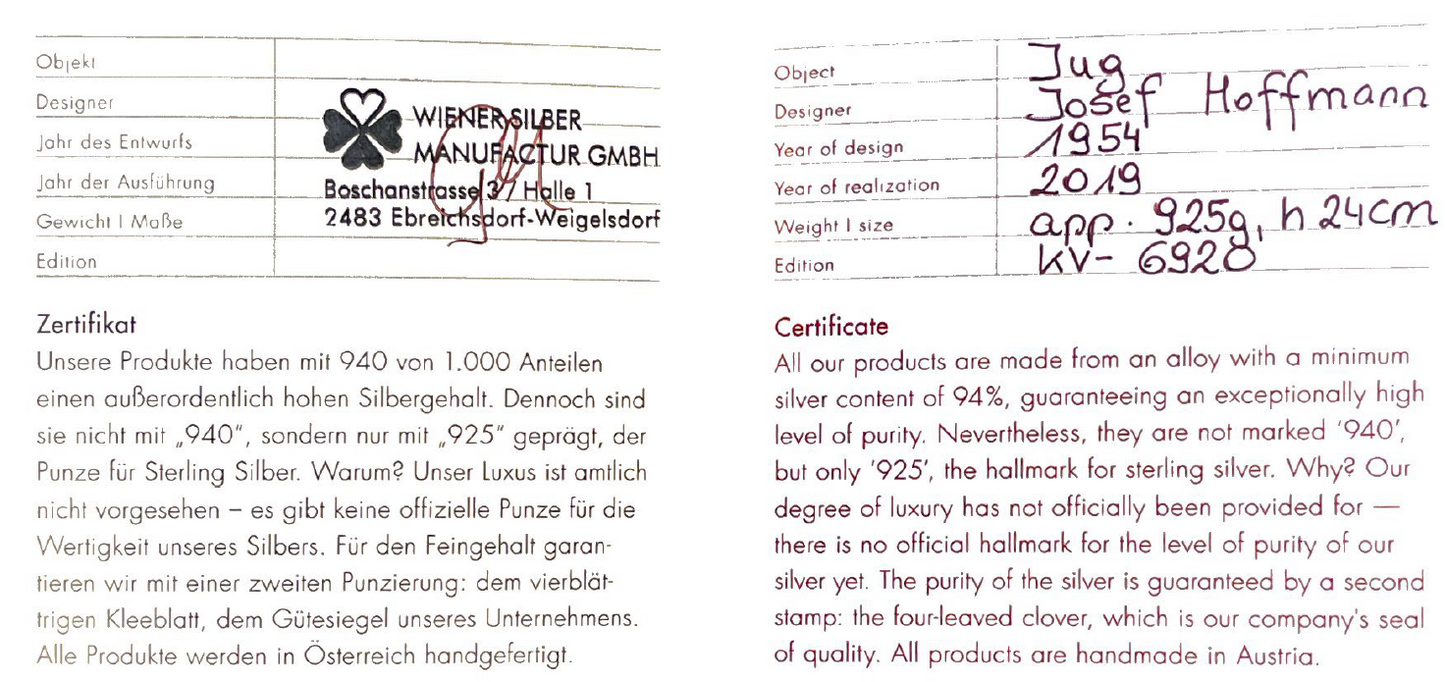 Objekt
Designer
Jahr des Entwurfs
Jahr der Ausführung
Gewicht | Maße
Edition
WIENER SILBER
MANUFACTUR GMBH
Boschanstrasse 3 / Halle 1
2483 Ebreichsdorf-Weigelsdorf
Zertifikat
Unsere Produkte haben mit 940 von 1.000 Anteilen
einen außerordentlich hohen Silbergehalt. Dennoch sind
sie nicht mit „940“, sondern nur mit „925“ geprägt, der
Punze für Sterling Silber. Warum? Unser Luxus ist amtlich
nicht vorgesehen – es gibt keine offizielle Punze für die
Wertigkeit unseres Silbers. Für den Feingehalt garan-
tieren wir mit einer zweiten Punzierung: dem vierblät-
trigen Kleeblatt, dem Gütesiegel unseres Unternehmens.
Alle Produkte werden in Österreich handgefertigt.
Object Jug
Designer Josef Hoffmann
Year of design 1954
Year of realization 2019
Weight | size app. 925g, h 24cm
Edition KV- 6920
Certificate
All our products are made from an alloy with a minimum
silver content of 94%, guaranteeing an exceptionally high
level of purity. Nevertheless, they are not marked '940',
but only '925', the hallmark for sterling silver. Why? Our
degree of luxury has not officially been provided for —
there is no official hallmark for the level of purity of our
silver yet. The purity of the silver is guaranteed by a second
stamp: the four-leaved clover, which is our company's seal
of quality. All products are handmade in Austria.